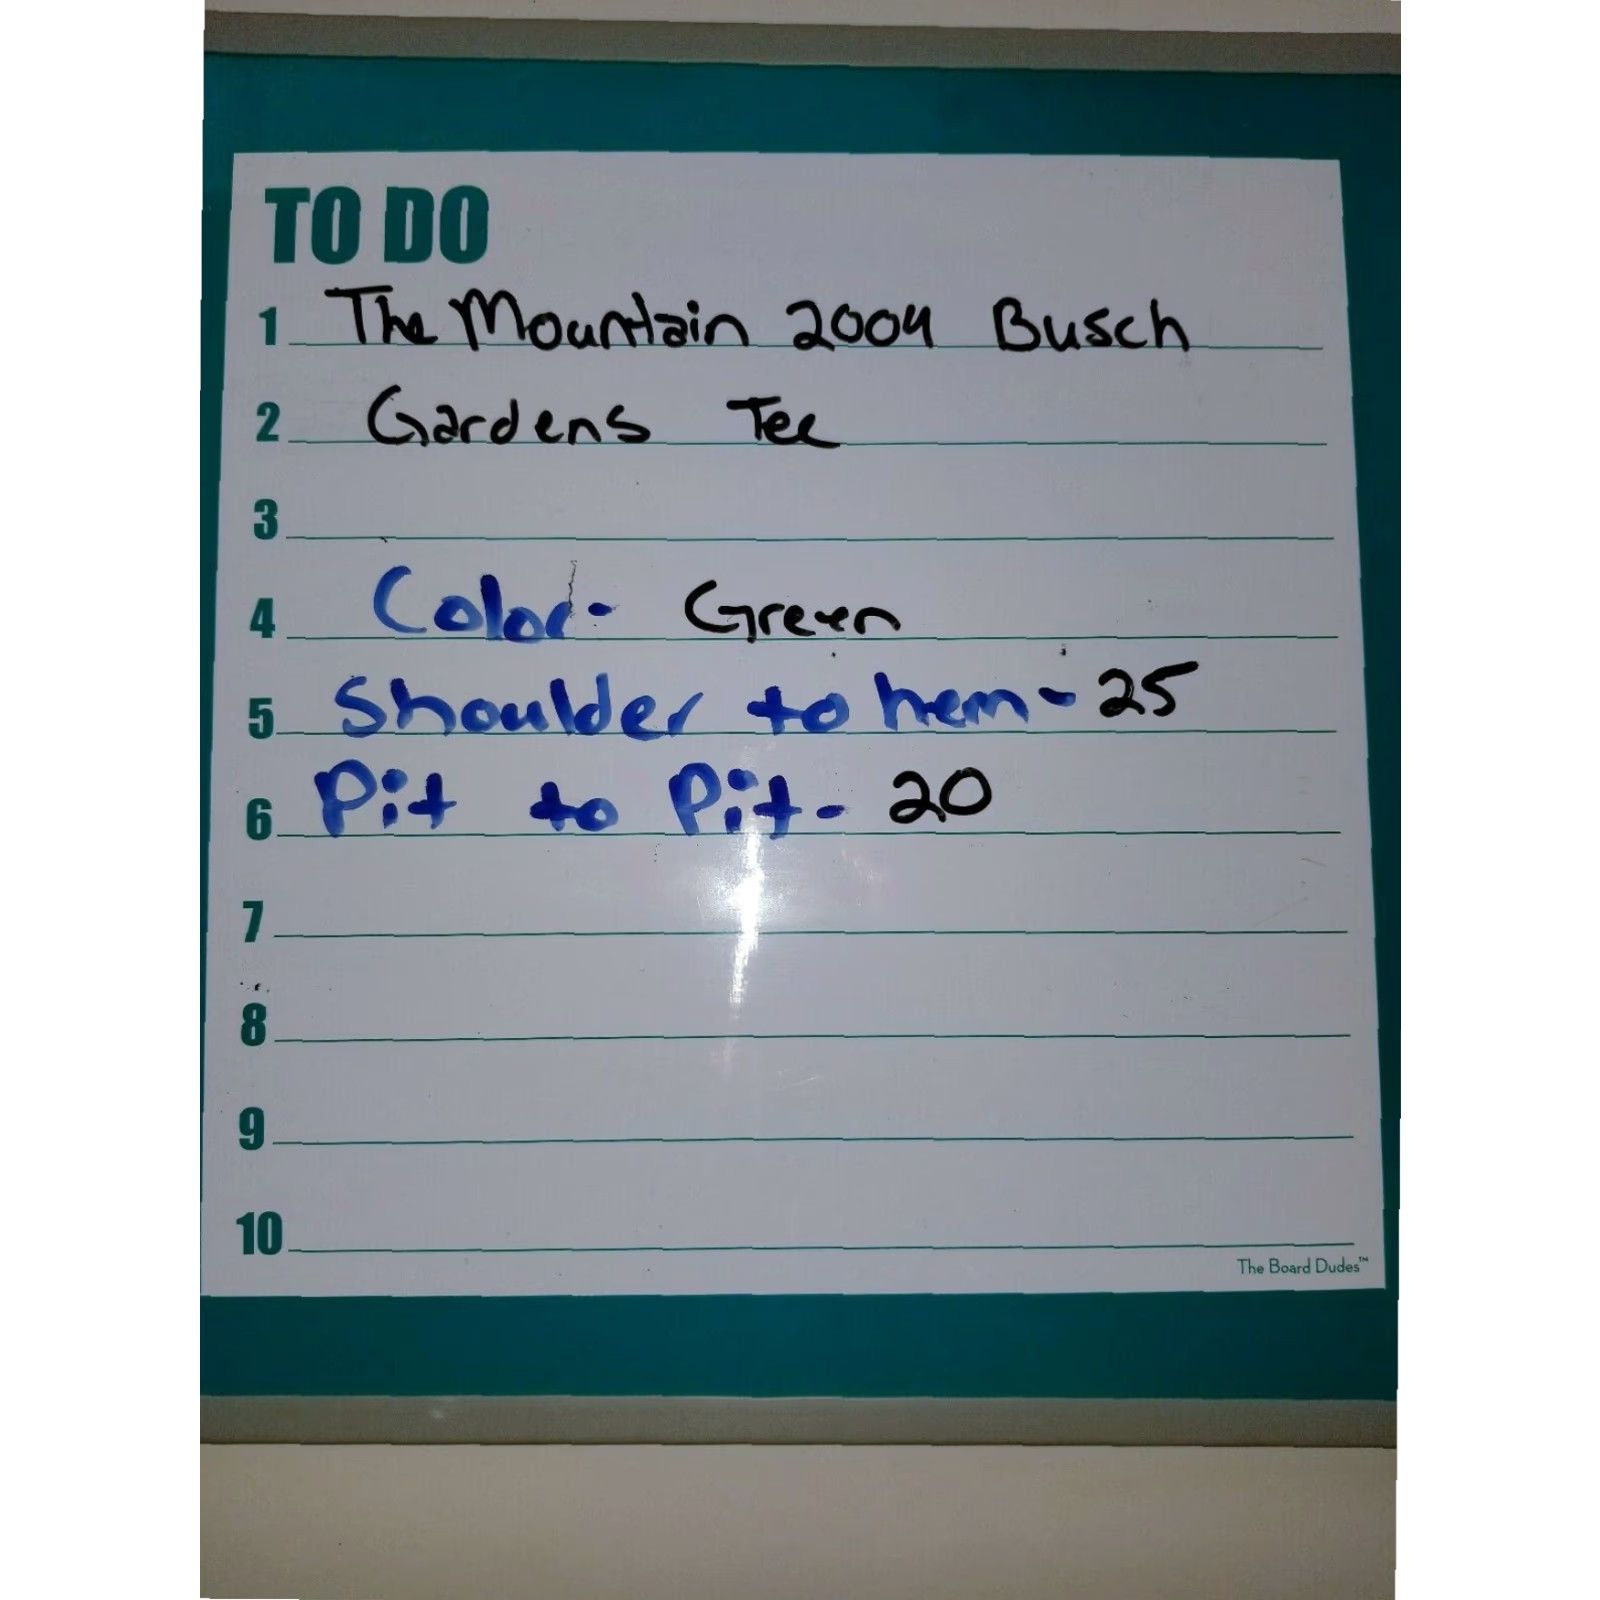 TO DO
1 The Mountain 2004 Busch
2 Gardens Tee
3
4 Color- Green
5 Shoulder to hem- 25
6 Pit to Pit- 20
7
8
9
10
The Board Dudes™